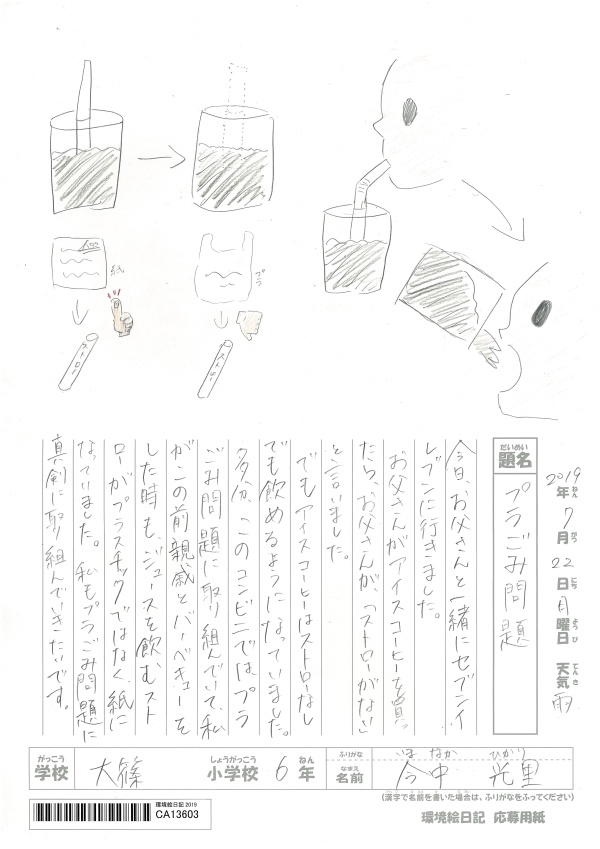 紙
プラ
ストロー
ストロー
2019年7月22日月曜日 天気雨
ねん がつ にち ようび てんき
だいめい
題名
プラごみ問題
今日、お父さんと一緒にセブンイ
レブンに行きました。
お父さんがアイスコーヒーを買っ
たら、お父さんが、「ストローがない」
と言いました。
でもアイスコーヒーはストローなし
でも飲めるようになっていました。
多分、このコンビニでは、プラ
ごみ問題に取り組んでいて、私
がこの前親戚とバーベキューを
した時も、ジュースを飲むスト
ローがプラスチックではなく、紙に
なっていました。私もプラごみ問題に
真剣に取り組んでいきたいです。
がっこう しょうがっこう ねん
学校 大篠 小学校 6年
ふりがな いまなか ひかり
なまえ
名前 今中 光里
(漢字で名前を書いた場合は、ふりがなをふってください)
環境絵日記 2019
CA13603
環境絵日記 応募用紙